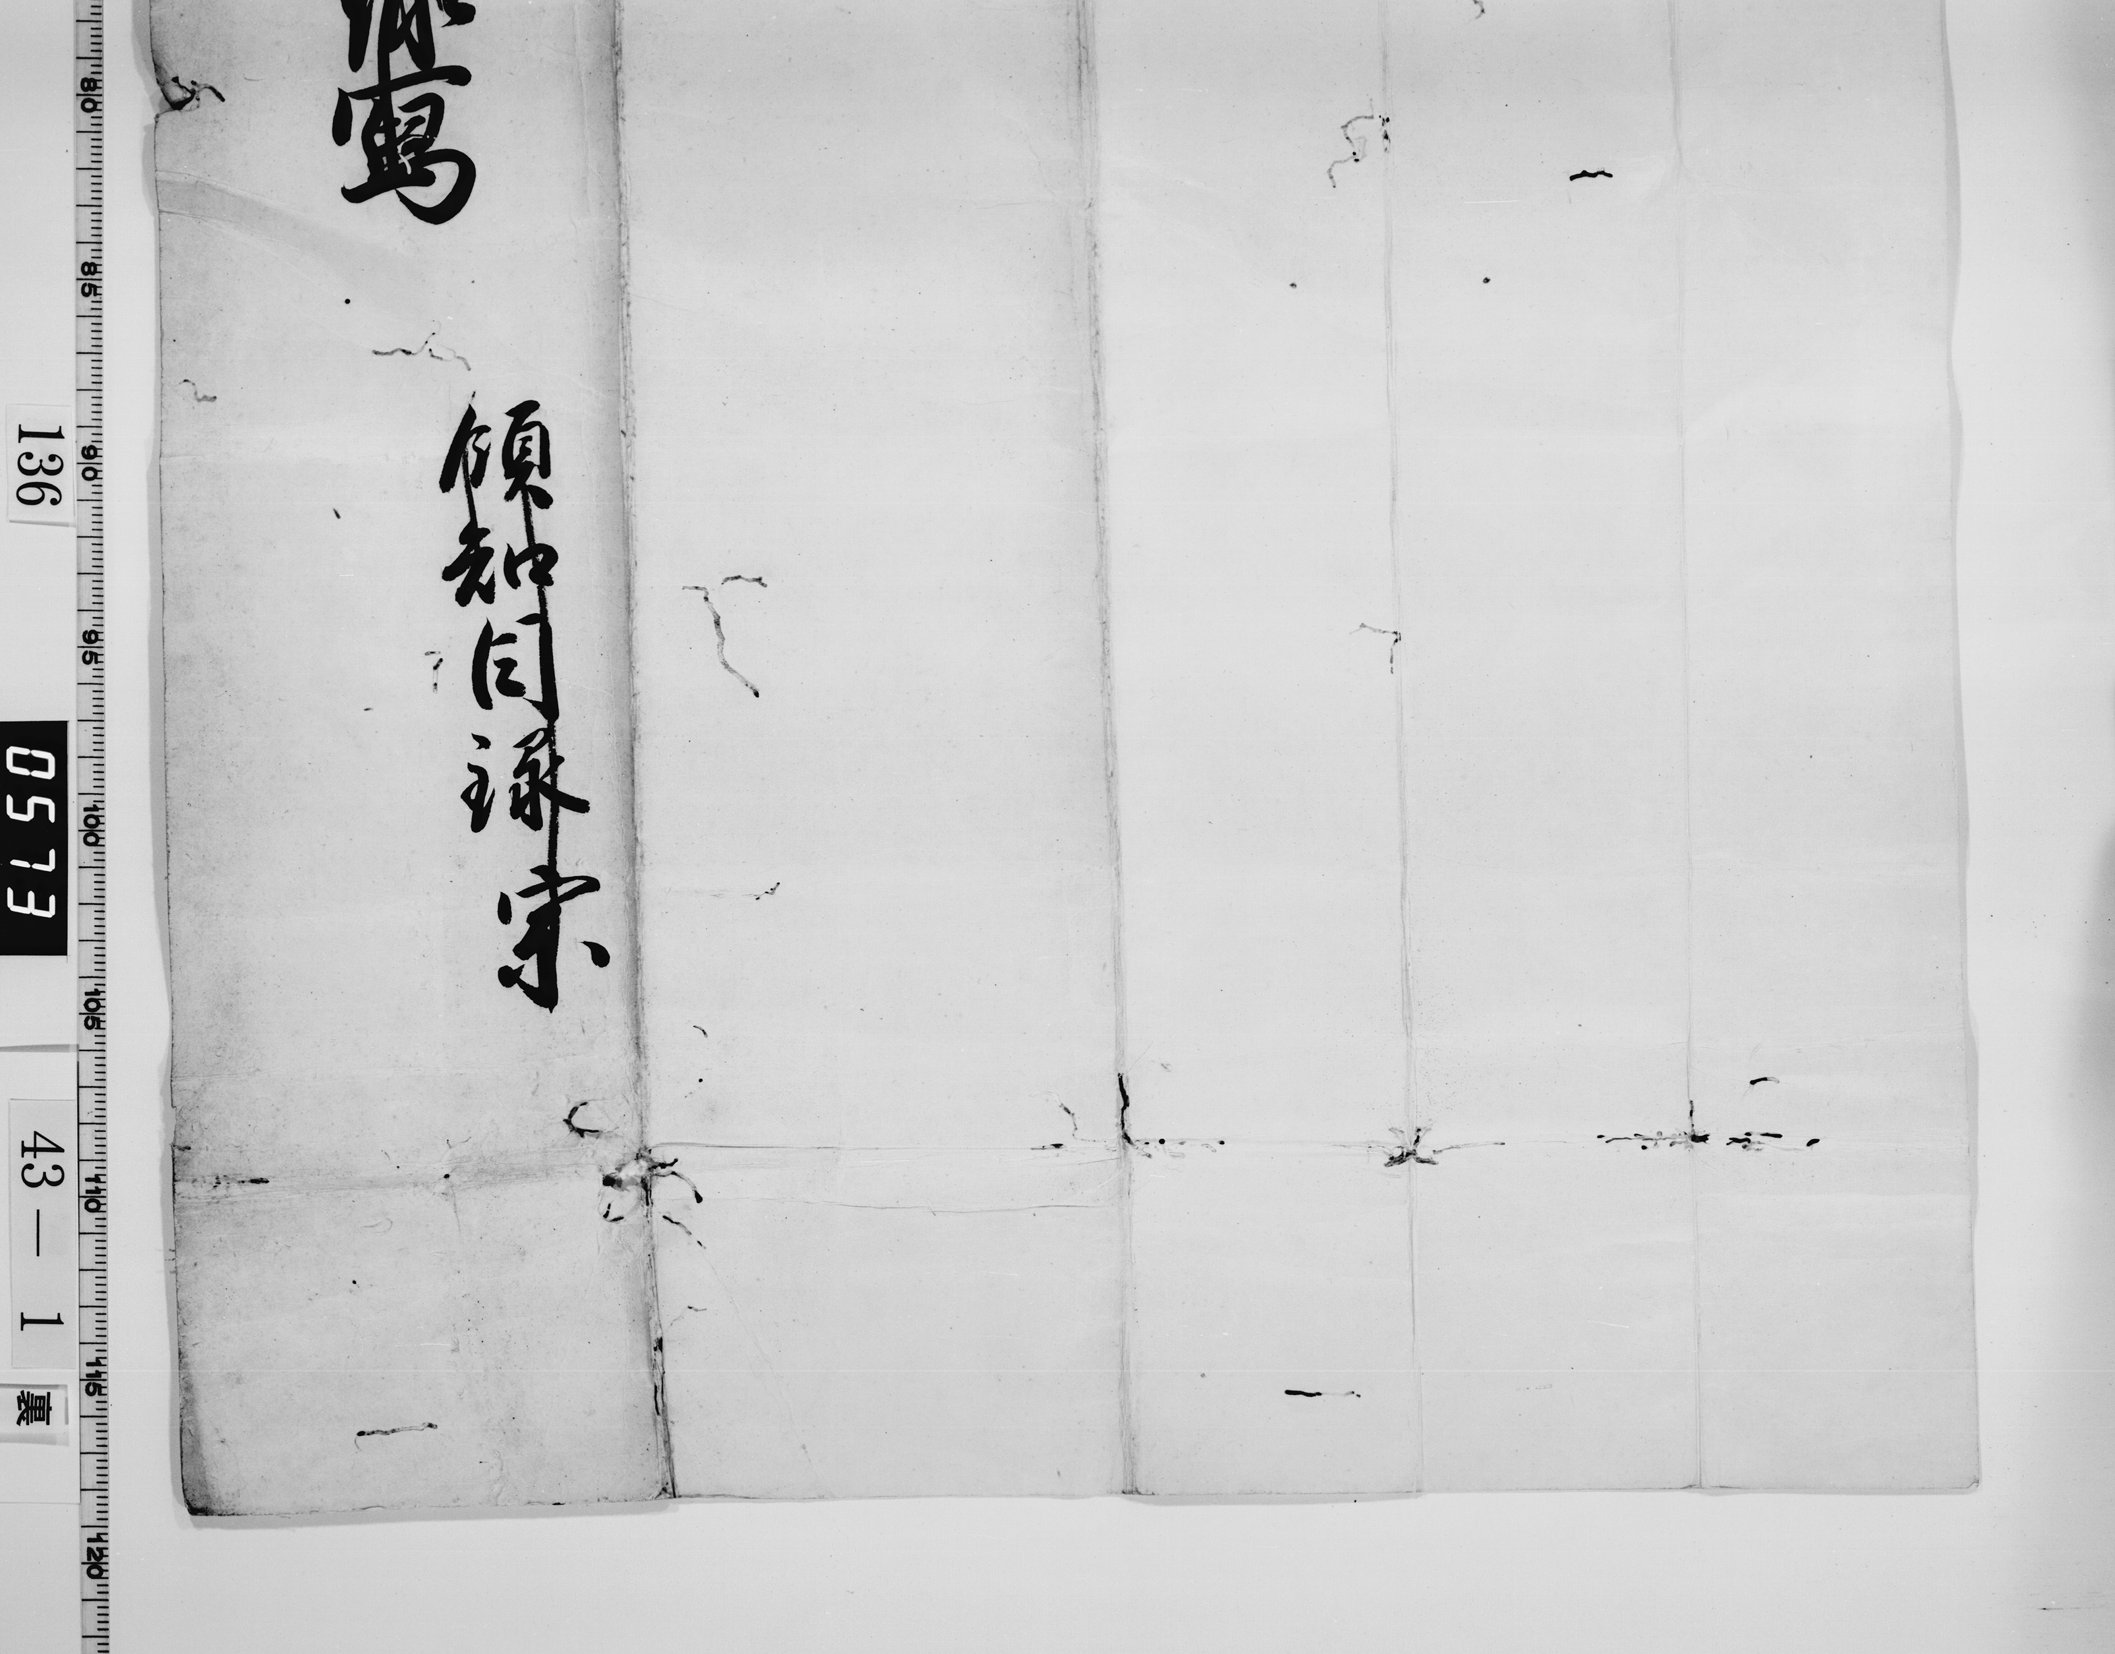 領知目録案
寫
136
0573
43—1
裏
80
85
90
95
100
105
110
115
120